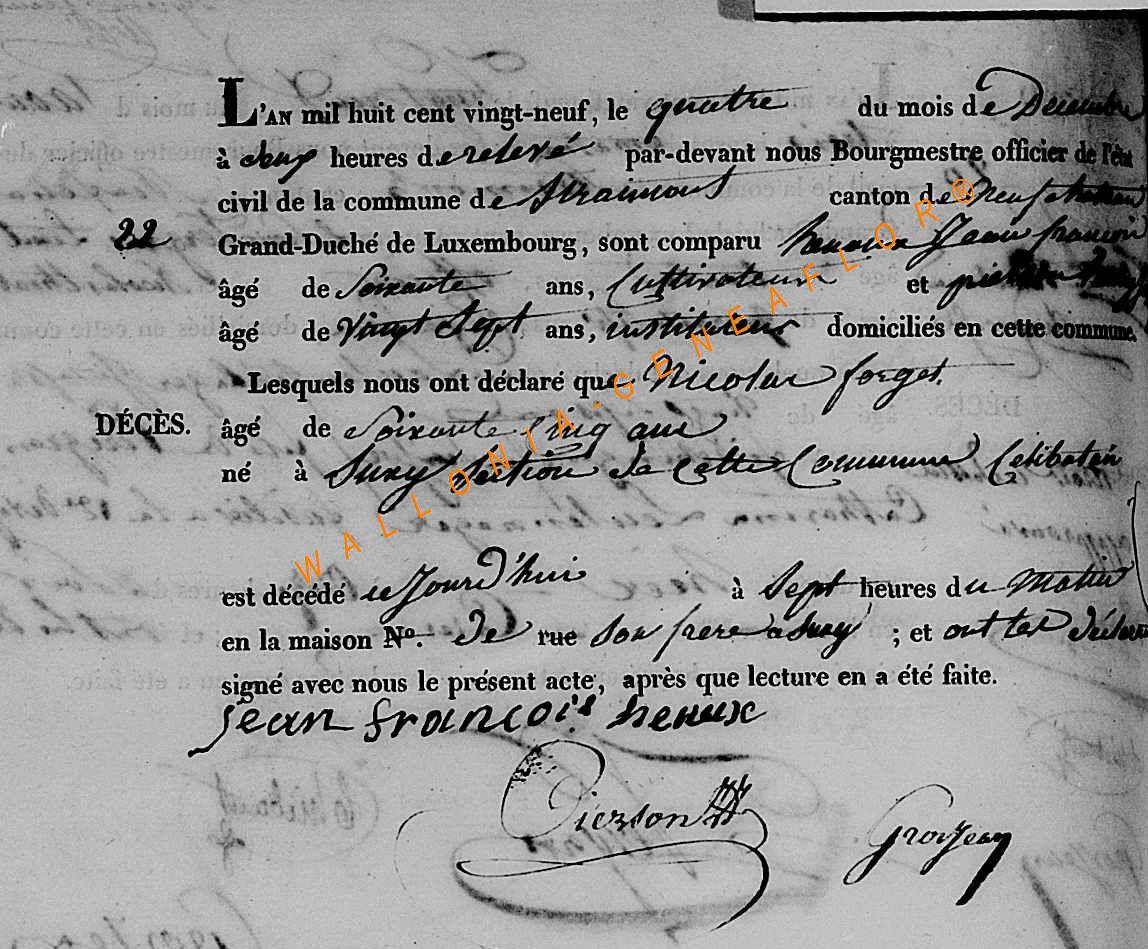 L'AN mil huit cent vingt-neuf, le quatre du mois de Decembre
à deux heures de relevé par-devant nous Bourgmestre, officier de l'état
civil de la commune de Straimont canton de Neufchateau
22
Grand-Duché de Luxembourg, sont comparu Jean françois
âgé de Soixante ans, Cultivateur et
âgé de Vingt Sept ans, instituteur domiciliés en cette commune.
Lesquels nous ont déclaré que Nicolas forget.
DÉCÈS. âgé de Soixante Cinq ans
né à Suxy Section de Cette Commune Celibatair
est décédé ce Jourd'hui à Sept heures du Matin
en la maison No. De rue Son frere a Suxy ; et ont les
signé avec nous le présent acte, après que lecture en a été faite.
jean françois henux
Pierson
Grosjean
WALLONIA-GENEAFLOR®